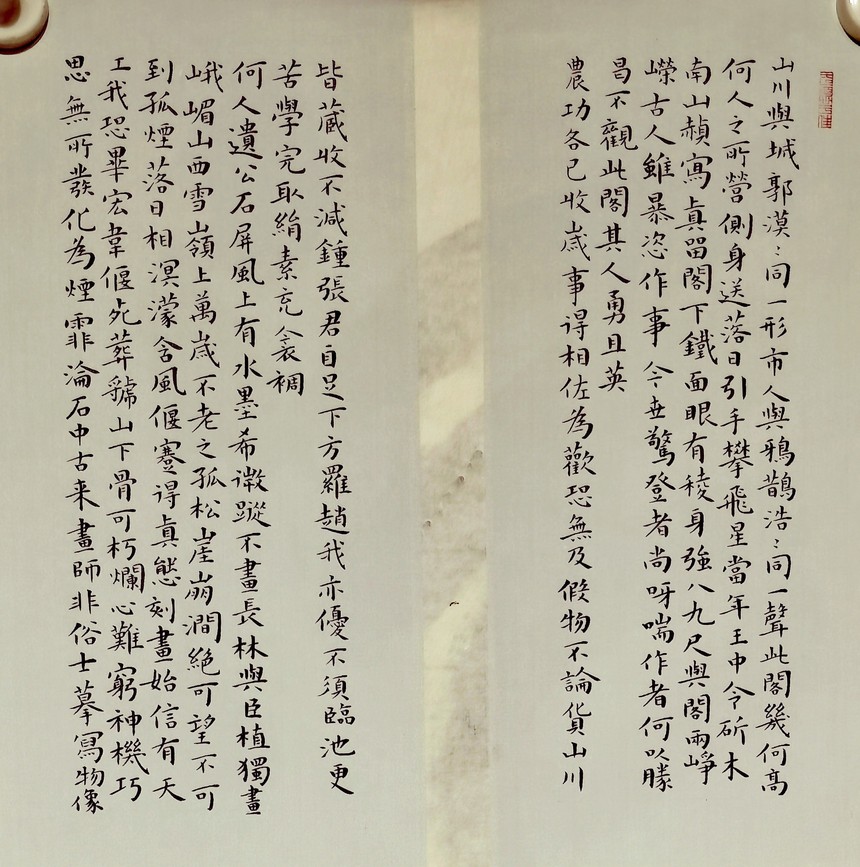 山川與城郭漠ミ同一形市人與鴉鵲浩ミ同一聲此閣幾何高
何人之所營側身送落日引手攀飛星當年王中令斫木
南山赬寫真留閣下鐵面眼有稜身強八九尺與閣兩崢
嶸古人雖暴恣作事今世驚登者尚呀喘作者何以勝
曷不觀此閣其人勇且英
農功各已收歲事得相佐為歡恐無及假物不論貨山川
皆藏收不減鍾張君自足下方羅趙我亦優不須臨池更
苦學完取絹素充衾裯
何人遺公石屏風上有水墨希微蹤不畫長林與巨植獨畫
峨嵋山西雪嶺上萬歲不老之孤松崖崩澗絕可望不可
到孤煙落日相溟濛含風偃蹇得真態刻畫始信有天
工我恐畢宏韋偃死葬虢山下骨可朽爛心難窮神機巧
思無所發化為煙霏淪石中古来畫師非俗士摹寫物像